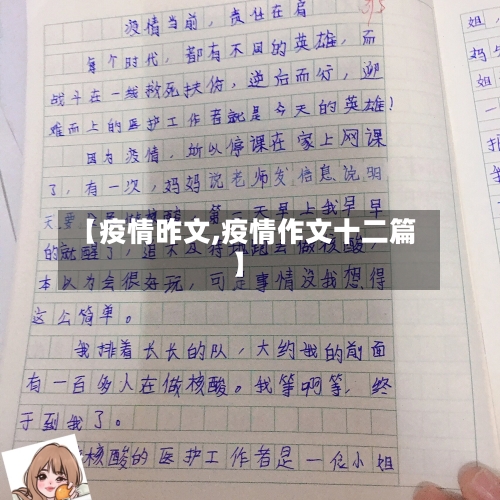 疫情当前，责任在肩
95
每个时代，都有不同的英雄，而
战斗在一线救死扶伤，逆后而行，迎
难而上的医护工作者就是今天的英雄！
因为疫情，所以停课在家上网课
了，有一次，妈妈说老师发信息说明
天要 第二天早上我早早
【疫情昨文,疫情作文十二篇
】
的就醒了，迫不及待 去做核酸
本以为会很好玩，可是事情没我想得
这么简单。
我排着长长的队，大约我的前面
有一百多人在做核酸。我等啊等，终
于到我了。
核酸的医护工作者是一位小姐
姐，
妈